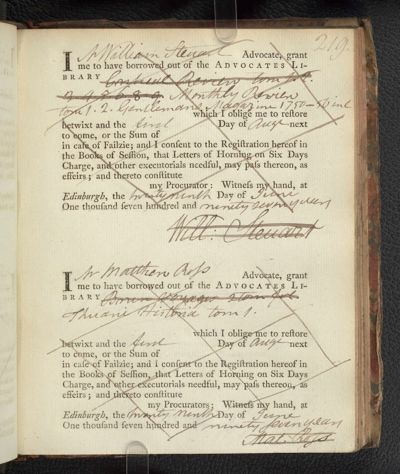 219.
I Mr William Steuart Advocate, grant
me to have borrowed out of the ADVOCATES LI-
BRARY Critical Review tom
2 4 8 6 8 9 Monthly Review
tom 1. 2. Gentlemans Magazine 1750 –
which I oblige me to restore
betwixt and the first Day of Augt next
to come, or the Sum of
in case of Failzie; and I consent to the Registration hereof in
the Books of Session, that Letters of Horning on Six Days
Charge, and other executorials needful, may pass thereon, as
effeirs; and thereto constitute
my Procurator: Witness my hand, at
Edinburgh, the twenty ninth Day of June
One thousand seven hundred and ninety seven years
Will: Steuart
I Mr Matthew Ross Advocate, grant
me to have borrowed out of the ADVOCATES LI-
BRARY Voyages 2 tom fol
Thuani Historia tom 1.
which I oblige me to restore
betwixt and the first Day of Augt next
to come, or the Sum of
in case of Failzie; and I consent to the Registration hereof in
the Books of Session, that Letters of Horning on Six Days
Charge, and other executorials needful, may pass thereon, as
effeirs; and thereto constitute
my Procurator; Witness my hand, at
Edinburgh, the twenty ninth Day of June
One thousand seven hundred and ninety seven years
Mat: Ross